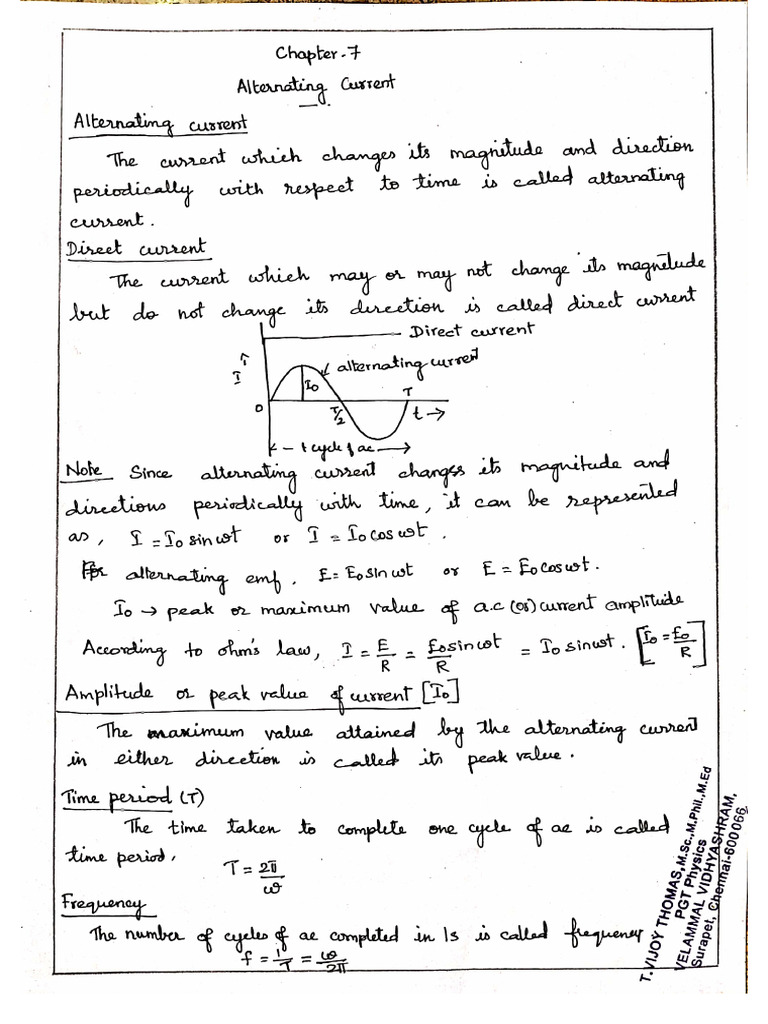 Chapter-7
Alternating Current
Alternating current
The current which changes its magnitude and direction
periodically with respect to time is called alternating
current.
Direct current
The current which may or may not change its magnitude
but do not change its direction is called direct current
Direct current
alternating current
↑
I
I₀
T
O
T/2
t →
← 1 cycle of ac →
Note Since alternating current changes its magnitude and
directions periodically with time, it can be represented
as, I = I₀ sin ωt or I = I₀ cos ωt.
For alternating emf, E = E₀ sin ωt or E = E₀ cos ωt.
I₀ → peak or maximum value of a.c (or) current amplitude
According to ohm's law, I = E/R = E₀ sin ωt/R = I₀ sin ωt. [I₀ = E₀/R]
Amplitude or peak value of current [I₀]
The maximum value attained by the alternating current
in either direction is called its peak value.
Time period (T)
The time taken to complete one cycle of ac is called
time period,
T = 2π/ω
Frequency
The number of cycles of ac completed in 1s is called frequency
f = 1/T = ω/2π
T. VIJOY THOMAS, M.Sc., M.Phil., M.Ed
PGT Physics
VELAMMAL VIDHYASHRAM,
Surapet, Chennai-600 066.